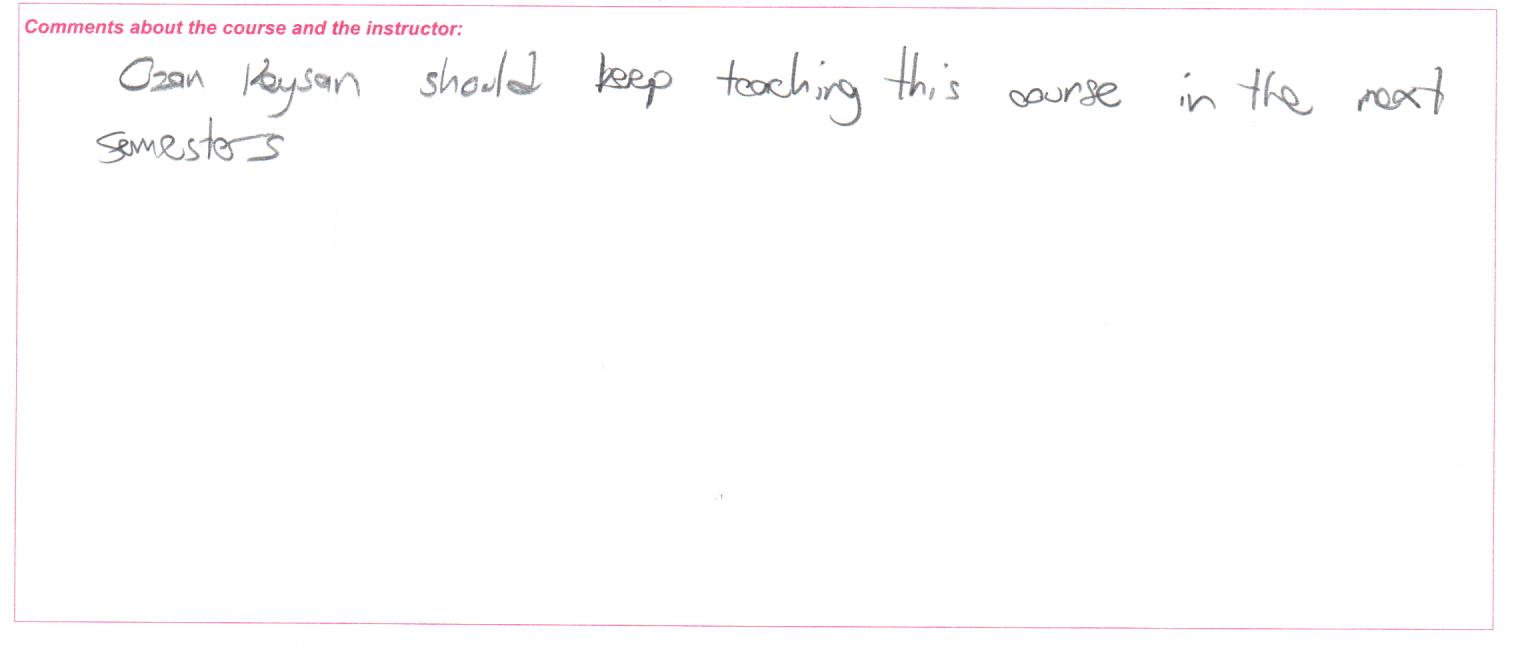 Comments about the course and the instructor:
Ozan Keysan should keep teaching this course in the next
semesters